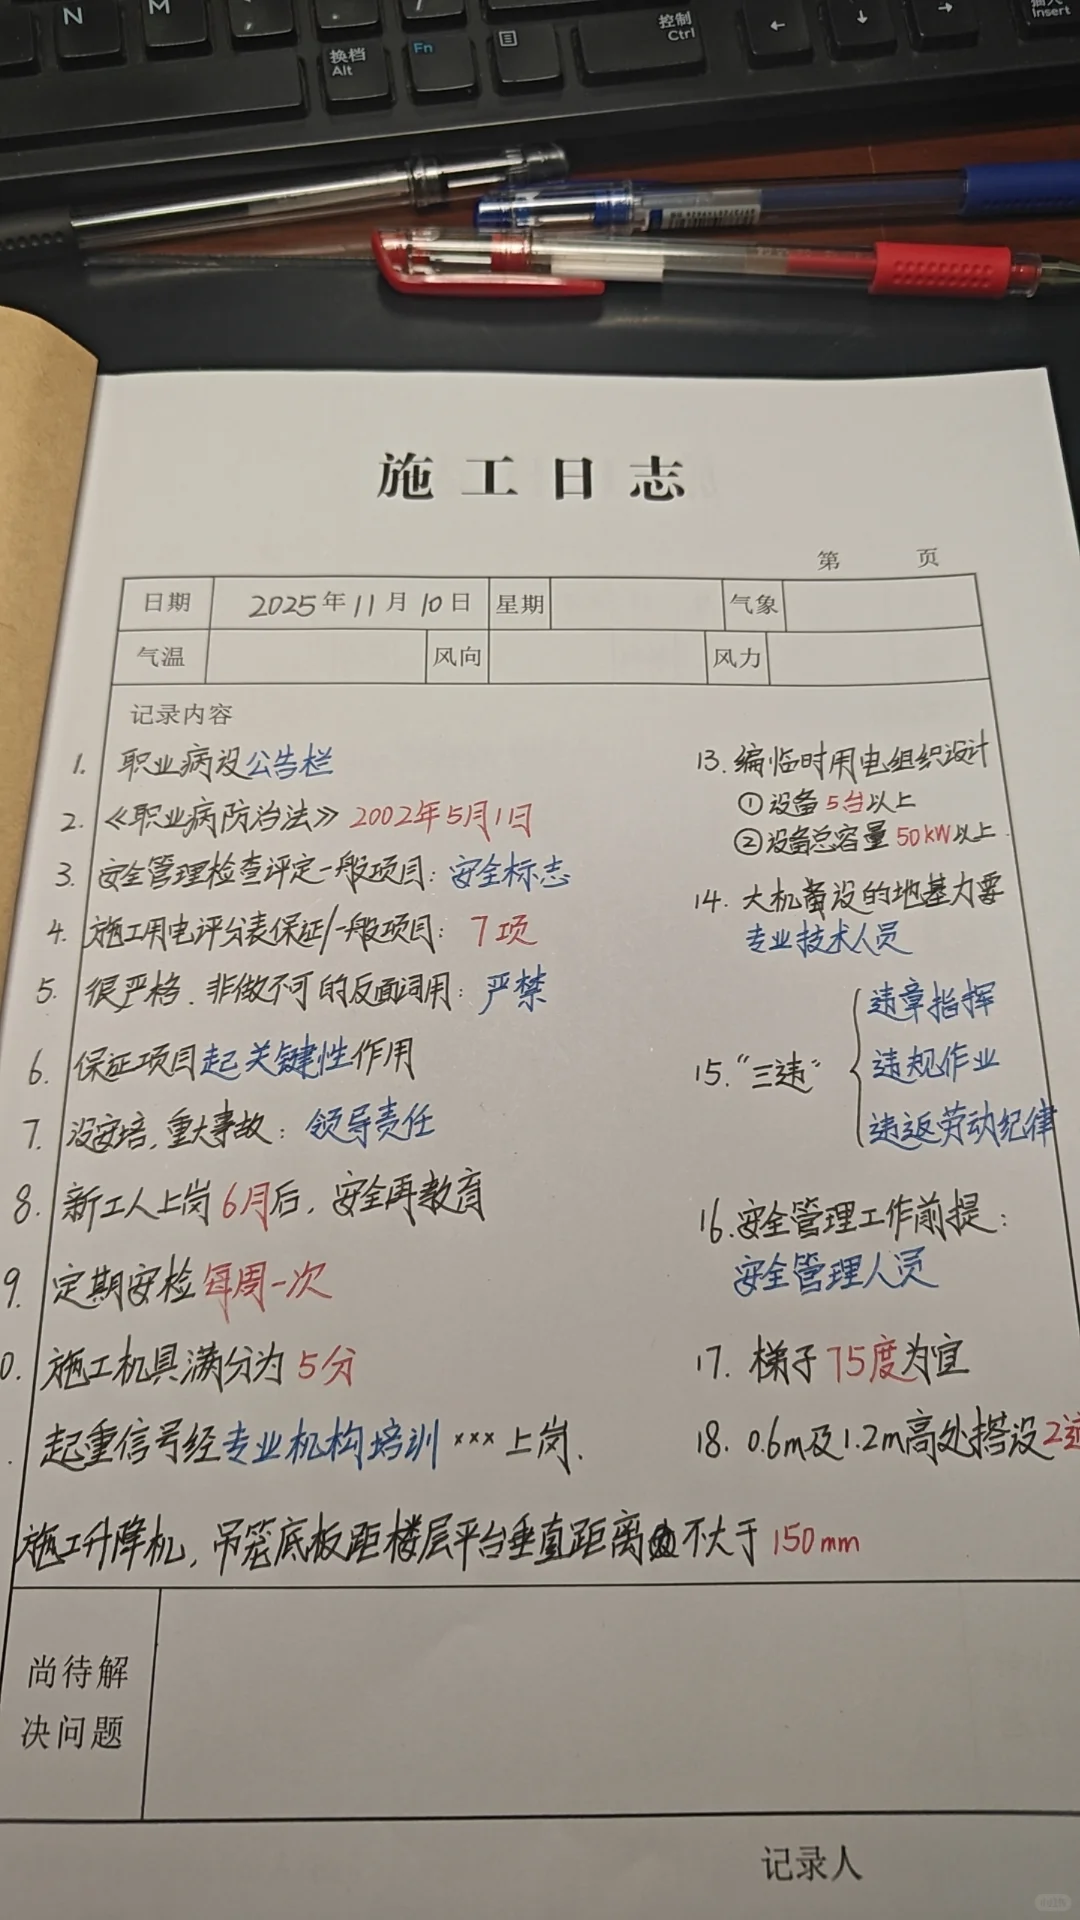 N
M
换档
Alt
Fn
控制
Ctrl
←
↓
→
插入
Insert
施工日志
第 页
日期 2025年11月10日 星期 气象
气温 风向 风力
记录内容
1. 职业病设公告栏
2. 《职业病防治法》2002年5月1日
3. 安全管理检查评定一般项目:安全标志
4. 施工用电评分表保证/一般项目:7项
5. 很严格.非做不可的反面词用:严禁
6. 保证项目起关键性作用
7. 没安培,重大事故:领导责任
8. 新工人上岗6月后,安全再教育
9. 定期安检每周一次
0. 施工机具满分为5分
. 起重信号经专业机构培训×××上岗.
施工升降机,吊笼底板距楼层平台垂直距离不大于150mm
13. 编临时用电组织设计
①设备5台以上
②设备总容量50kW以上.
14. 大机备设的地基力要
专业技术人员
15. “三违”
违章指挥
违规作业
违返劳动纪律
16. 安全管理工作前提:
安全管理人员
17. 梯子75度为宜
18. 0.6m及1.2m高处搭设2
尚待解
决问题
记录人